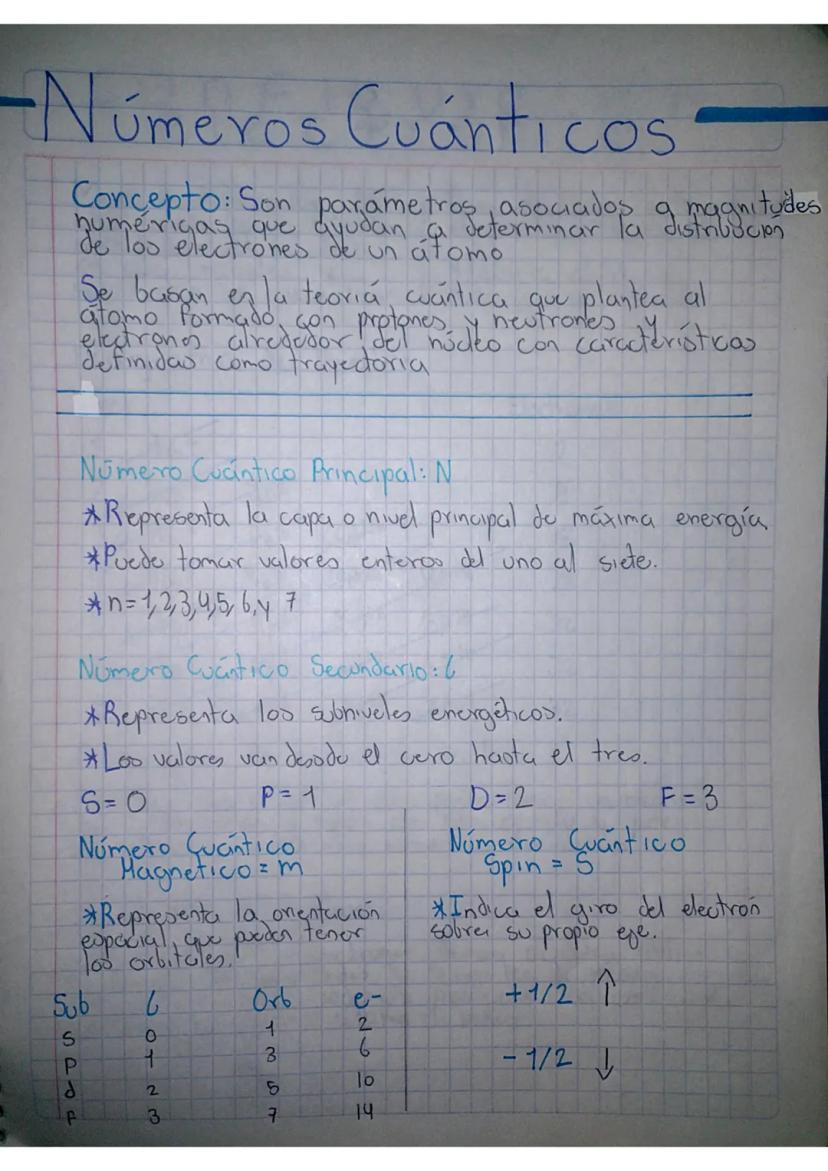 Números Cuánticos
Concepto: Son parámetros asociados a magnitudes
numéricas que ayudan a determinar la distribución
de los electrones de un átomo
Se basan en la teoriá cuántica que plantea al
átomo formado con protones y neutrones y
electrones alrededor del núcleo con características
definidas como trayectoria
Número Cuántico Principal: N
*Representa la capa o nivel principal de máxima energía
*Puede tomar valores enteros del uno al siete.
*n=1,2,3,4,5,6,y 7
Número Cuántico Secundario: l
*Representa los subniveles energéticos.
*Los valores van desde el cero hasta el tres.
S=0 P=1 D=2 F=3
Número Cuántico
Magnetico = m
*Representa la orientación
espacial, que pueden tener
los orbitales.
Sub l Orb e-
s 0 1 2
p 1 3 6
d 2 5 10
f 3 7 14
Número Cuántico
Spin = S
*Indica el giro del electrón
sobre su propio eje.
+1/2 ↑
-1/2 ↓